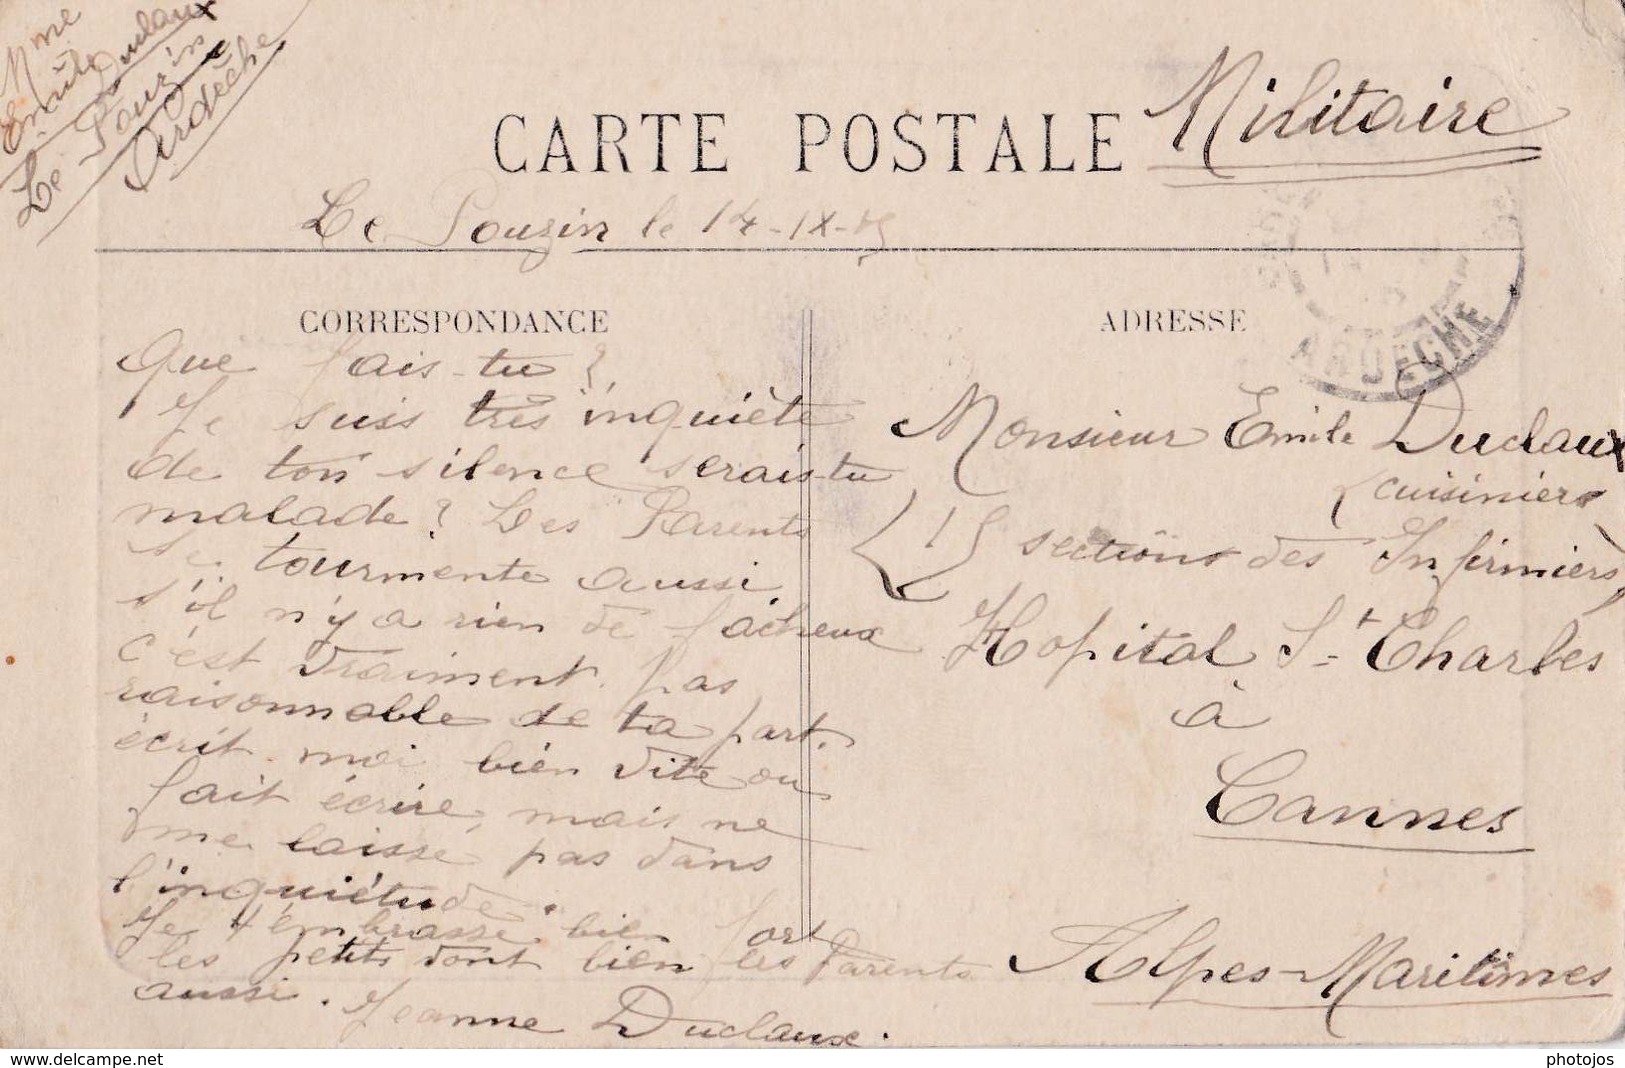 Mme
Emile Duclaux
Le Pouzin
Ardèche
CARTE POSTALE
Militaire
Le Pouzin le 14-IX-15
CORRESPONDANCE
ADRESSE
ARDECHE
Que fais-tu ?
Je suis très inquiète
de ton silence serais-tu
malade ? Les Parents
se tourmente aussi
s'il n'y a rien de fâcheux
c'est vraiment pas
raisonnable de ta part.
écrit moi bien vite ou
fait écrire, mais ne
me laisse pas dans
l'inquiétude.
Je t'embrasse bien fort
les petits vont bien les Parents
aussi. Jeanne Duclaux.
Monsieur Emile Duclaux
(cuisinier
15 sections des Infirmiers)
Hopital St Charles
à
Cannes
Alpes-Maritimes
photojos